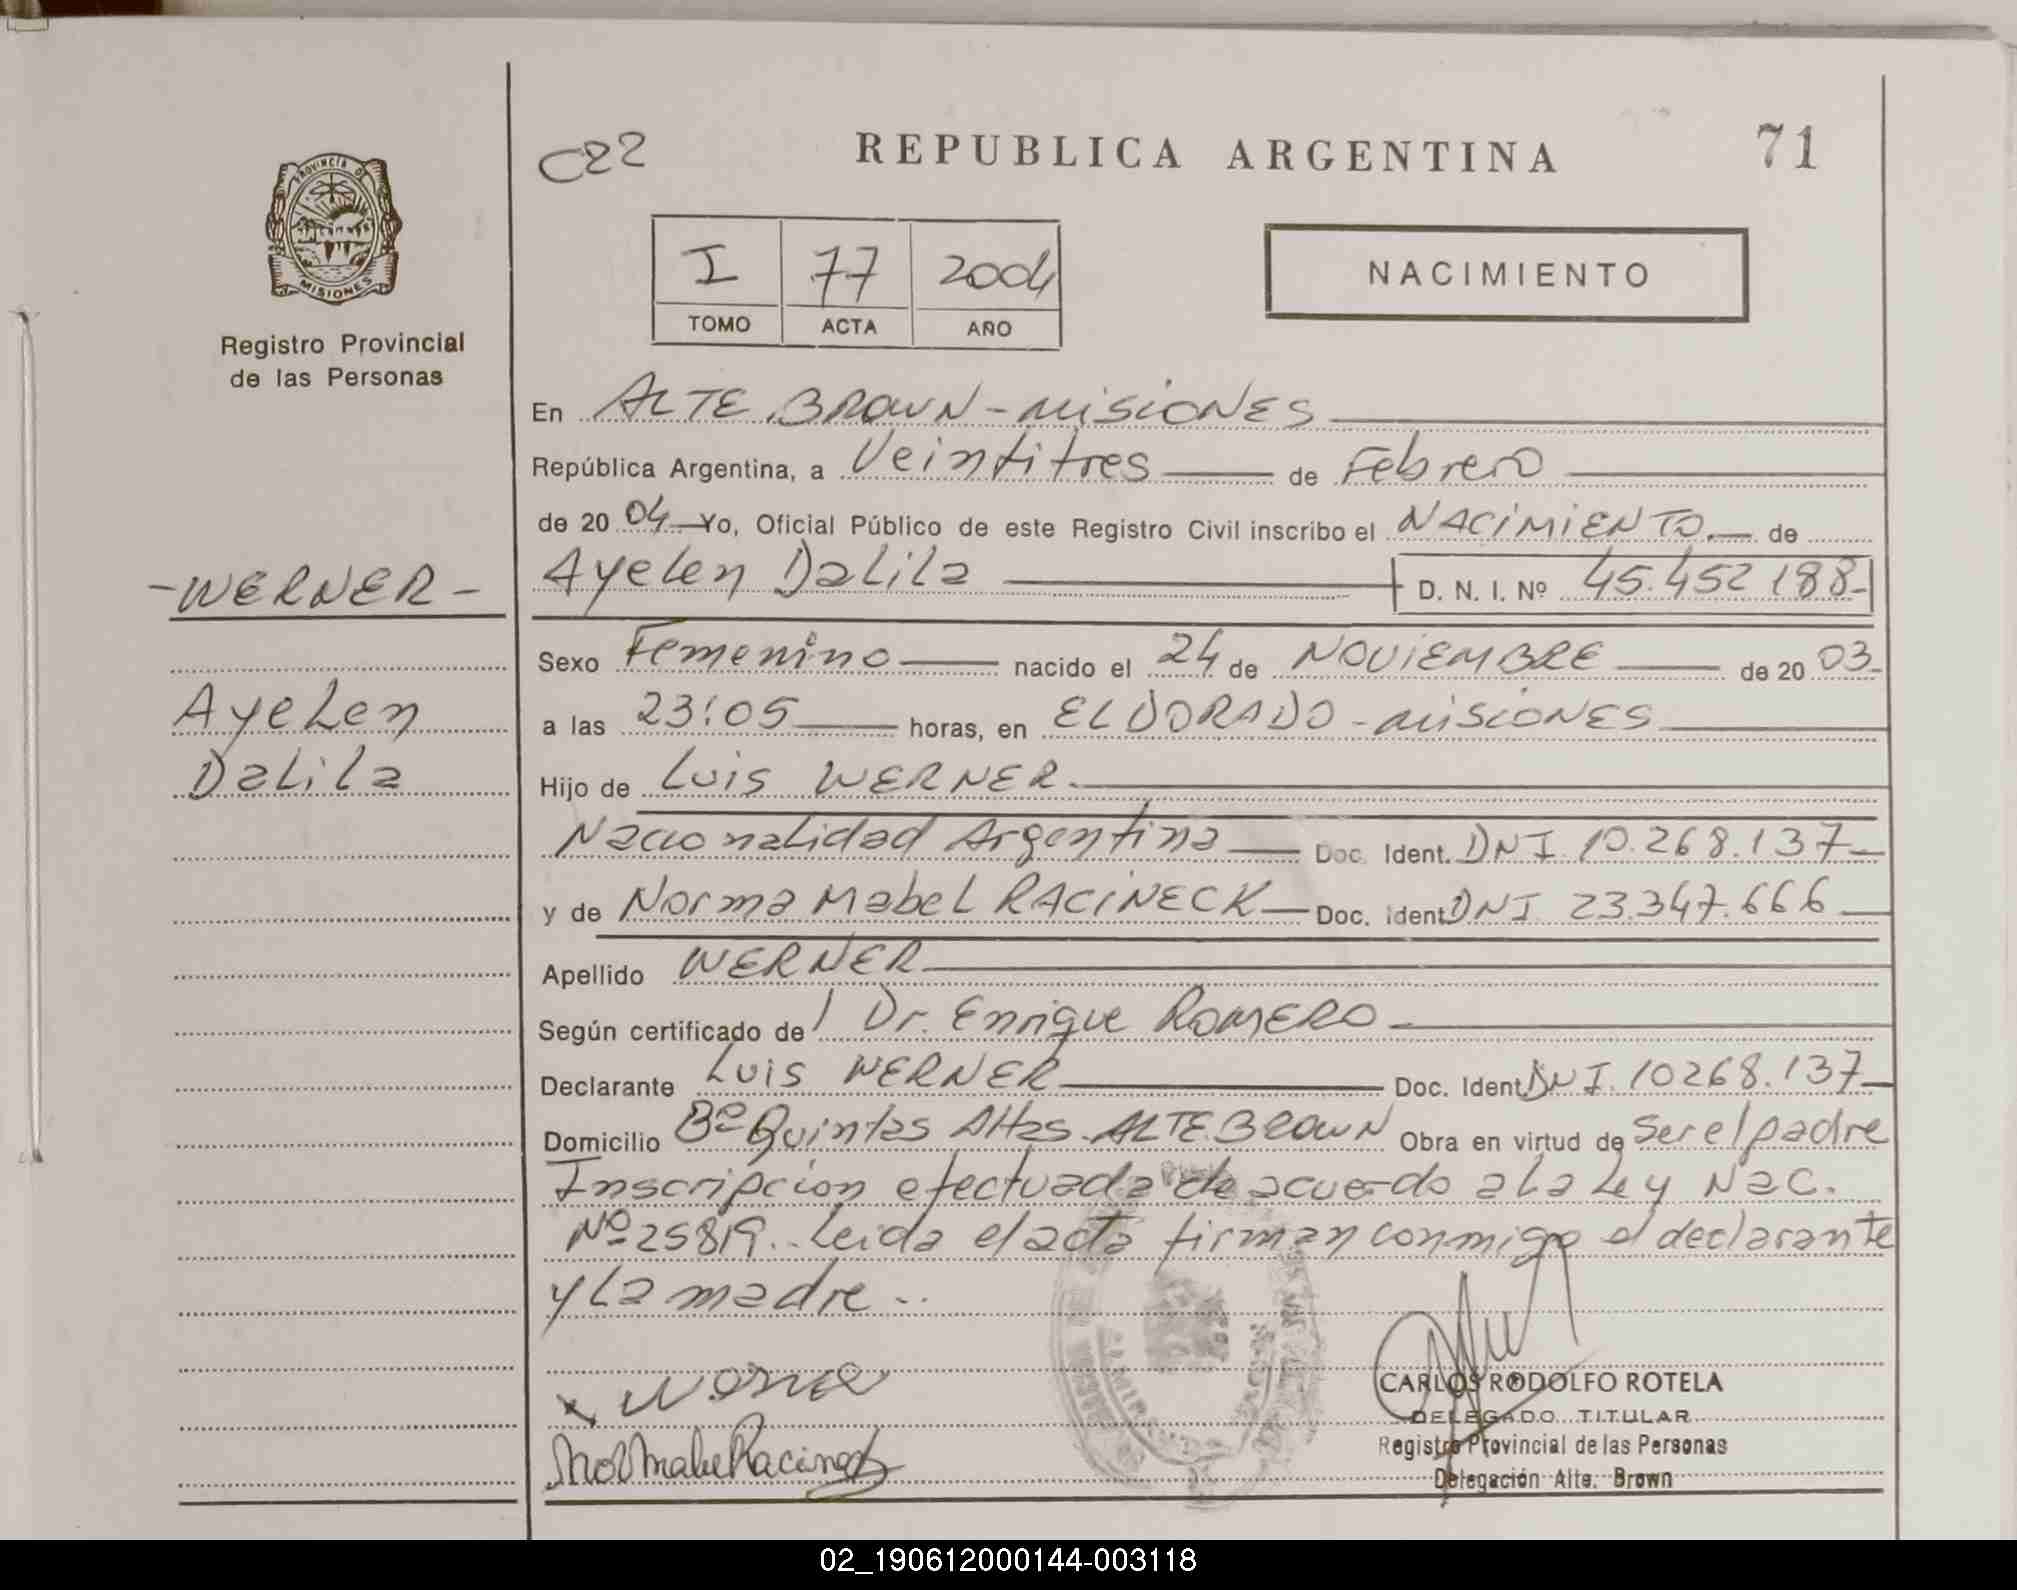 PROVINCIA DE
MISIONES
Registro Provincial
de las Personas
- WERNER -
Ayelen
Dalila
C22
REPUBLICA ARGENTINA
71
I 77 2004
TOMO ACTA AÑO
NACIMIENTO
En ALTE. BROWN - MISIONES
República Argentina, a Veintitres de Febrero
de 20 04 Yo, Oficial Público de este Registro Civil inscribo el NACIMIENTO de
Ayelen Dalila D. N. I. Nº 45.452 188-
Sexo Femenino nacido el 24 de NOVIEMBRE de 20 03
a las 23:05 horas, en ELDORADO - MISIONES
Hijo de Luis WERNER.
Nacionalidad Argentina Doc. Ident. DNI 10.268.137
y de Norma Mabel RACINECK Doc. Ident. DNI 23.347.666
Apellido WERNER
Según certificado de Dr. Enrique ROMERO
Declarante Luis WERNER Doc. Ident. DNI. 10268.137
Domicilio Bº Quintas Altas. ALTE. BROWN Obra en virtud de ser el padre
Inscripcion efectuada de acuerdo a la Ley Nac.
Nº 25819.. Leida el acta firman conmigo el declarante
y la madre..
x Werner
CARLOS RODOLFO ROTELA
DELEGADO TITULAR
Registro Provincial de las Personas
Delegación Alte. Brown
02_190612000144-003118